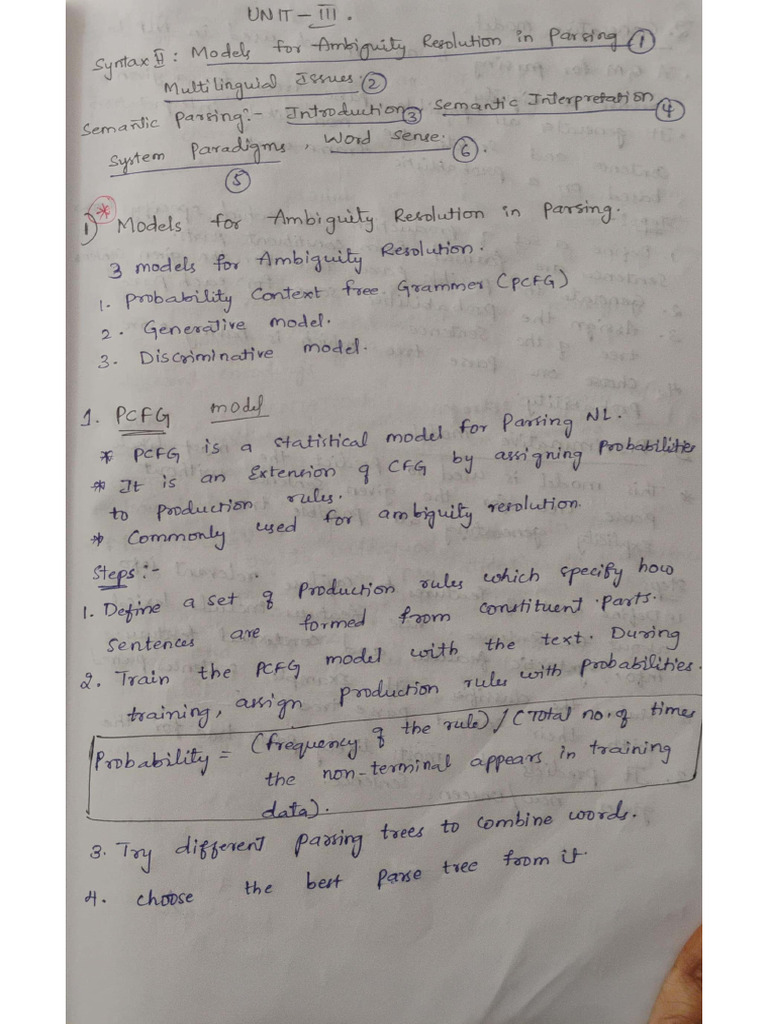 UNIT-III.
Syntax II: Models for Ambiguity Resolution in Parsing ①
Multilinguial Issues. ②
Semantic Parsing:- Introduction ③ Semantic Interpretation ④
System Paradigms, Word Sense. ⑥
⑤
1) * Models for Ambiguity Resolution in Parsing.
3 models for Ambiguity Resolution.
1. Probability Context free Grammer (PCFG)
2. Generative model.
3. Discriminative model.
1. PCFG model
* PCFG is a statistical model for Parsing NL.
* It is an Extension of CFG by assigning Probabilities
to production rules.
* Commonly used for ambiguity resolution.
Steps:-
1. Define a set of Production rules which specify how
sentences are formed from constituent parts.
2. Train the PCFG model with the text. During
training, assign production rules with probabilities.
Probability = (frequency of the rule) / (Total no. of times
the non-terminal appears in training
data).
3. Try different parsing trees to combine words.
4. choose the best Parse tree from it.